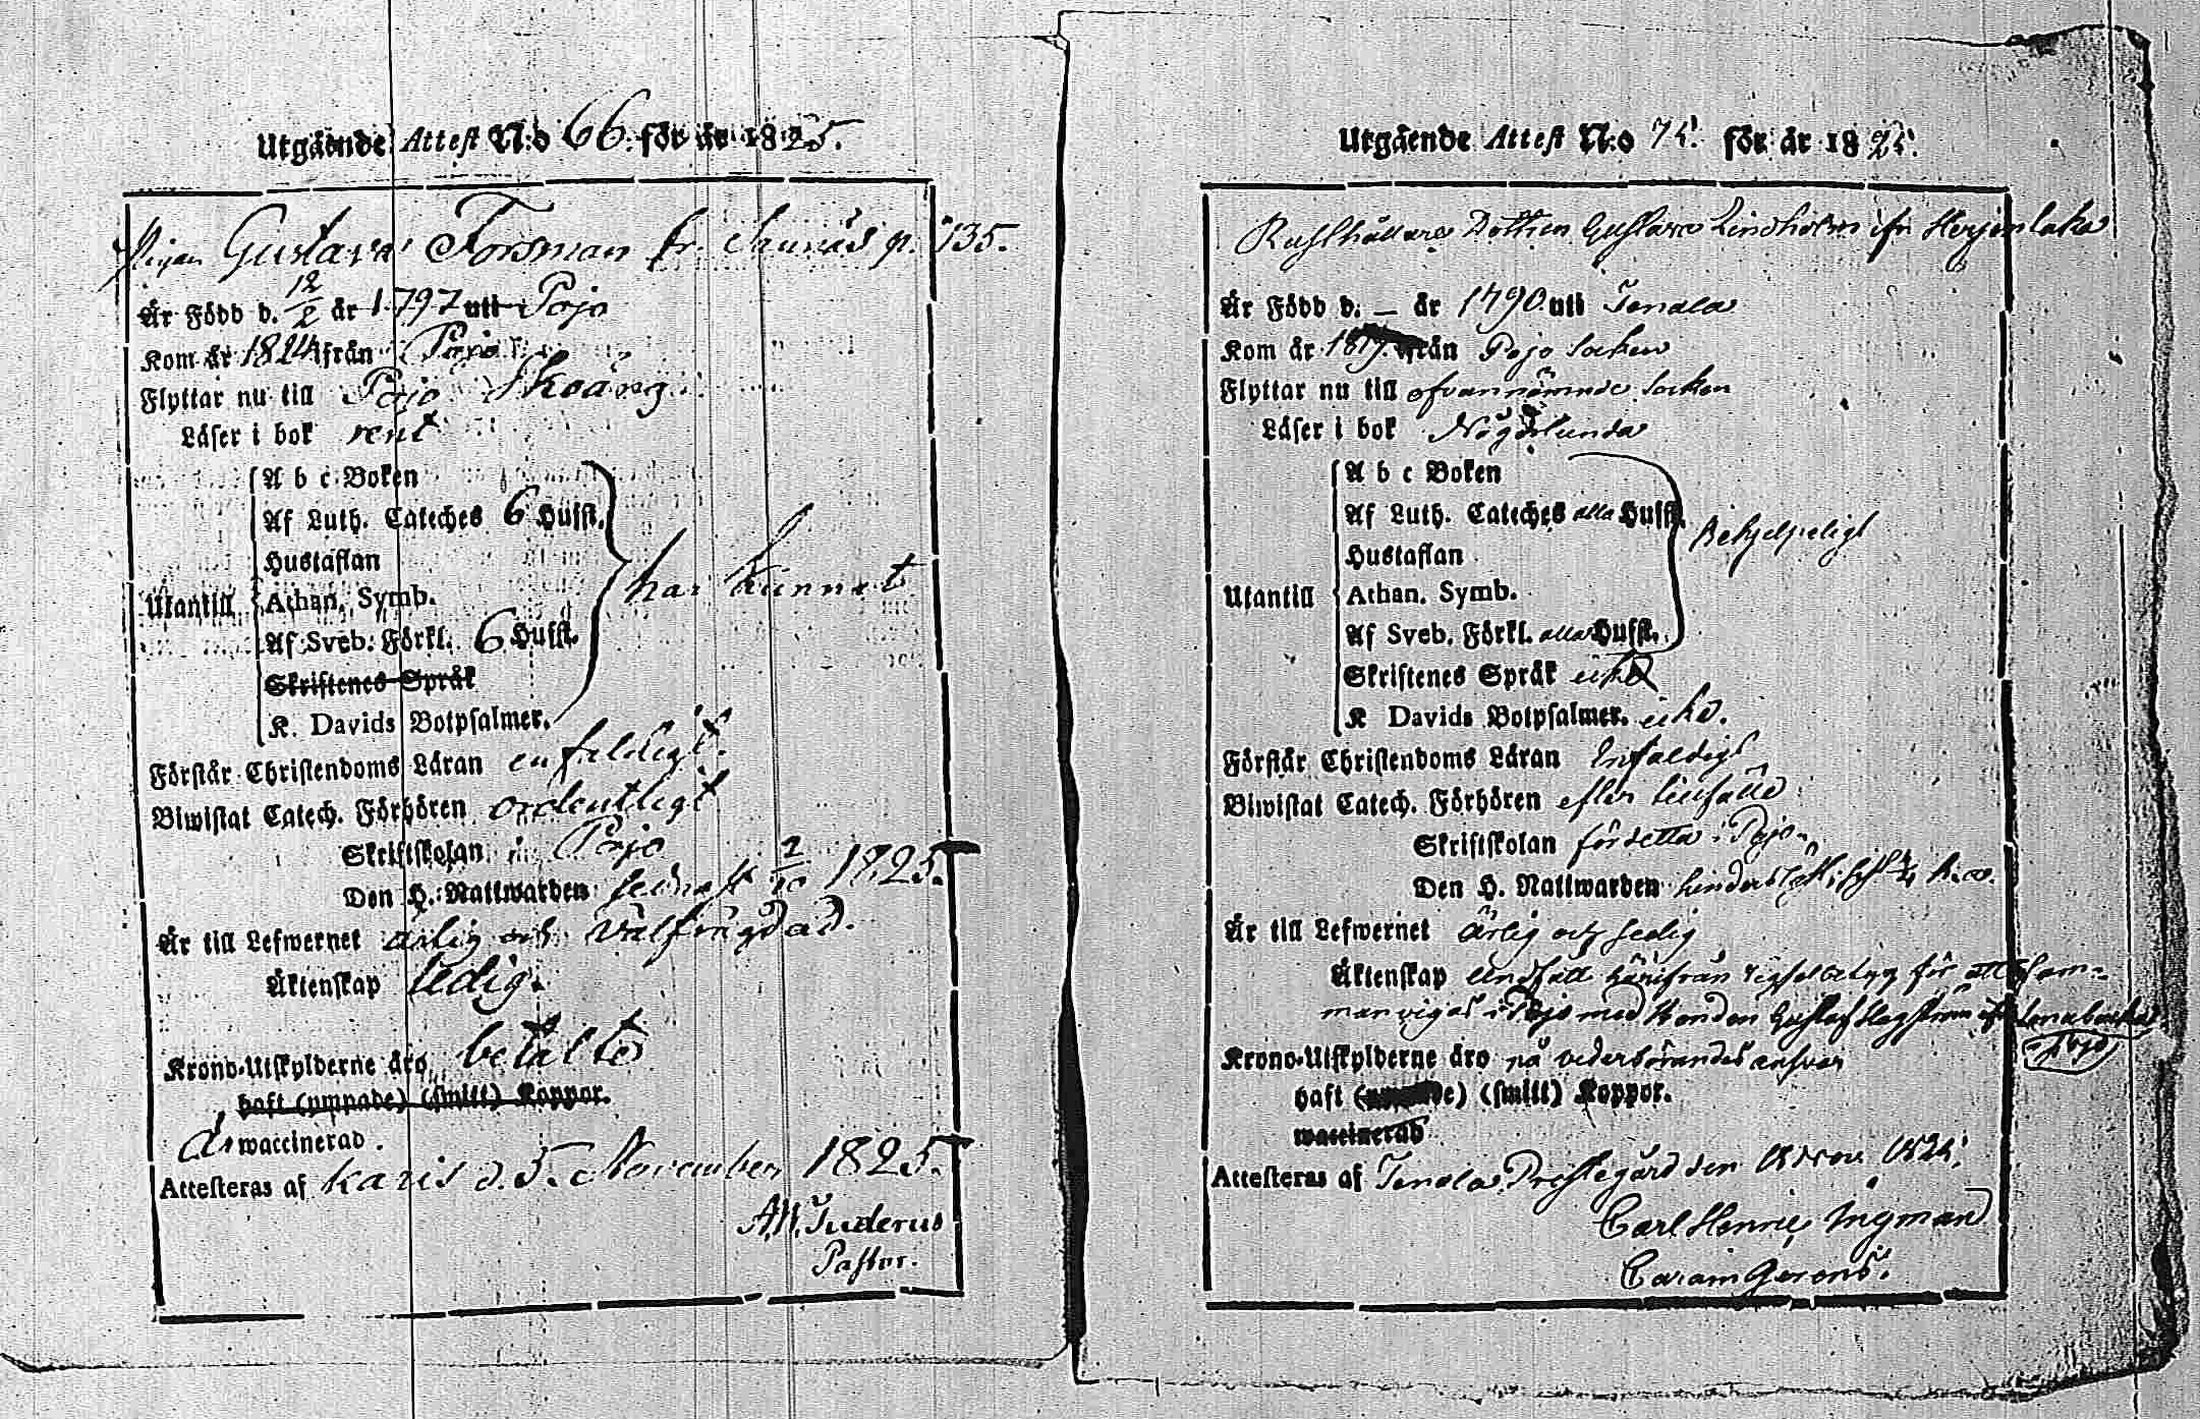 Utgående Attest N:o 66. för år 1825.
Pigan Gustava Forsman fr. p. 135.
Är Född d. 12/2 år 1797 uti Pojo
Kom år 1824 ifrån Pojo
Flyttar nu till Pojo Skoäng.
Läser i bok rent
A b c Boken
Af Luth. Cateches 6 Husst.
Hustaflan
Utantill Athan. Symb. har kunnat
Af Sveb. Förkl. 6 Husst.
Skriftenes Språk
K. Davids Botpsalmer.
Förstår Christendoms Läran enfaldigt.
Biwistat Catech. Förhören ordentligt
Skriftskolan i Pojo
Den H. Nattwarden sednast 2/10 1825.
Är till Lefwernet ärlig och välfrägdad.
Äktenskap ledig.
Krono-Utskylderne äro betalte
haft (ympade) (smitt) Koppor.
är waccinerad.
Attesteras af Karis d. 5. November 1825.
Juderus
Pastor.
Utgående Attest N:o 75. för år 1825.
Rusthållare Dottren Gustava Lindholm ifr
Är Född d. — år 1790 uti Tenala
Kom år 1819. ifrån Pojo Socken
Flyttar nu till ofvannämnde Socken
Läser i bok Någorlunda
A b c Boken
Af Luth. Cateches alla Husst. Behjelpeligt
Hustaflan
Utantill Athan. Symb.
Af Sveb. Förkl. alla Husst.
Skriftenes Språk icke
K Davids Botpsalmer. icke.
Förstår Christendoms Läran Enfaldigt
Biwistat Catech. Förhören efter
Skriftskolan i Pojo
Den H. Nattwarden
Är till Lefwernet ärlig och sedig
Äktenskap härifrån för att Sam-
manvigas i Pojo med Gustaf
Pojo
Krono-Utskylderne äro på vederbörandes ansvar
haft (smitt) Koppor.
waccinerad
Attesteras af Tenala Prestegård den 1825.
Carl Henric Ingman